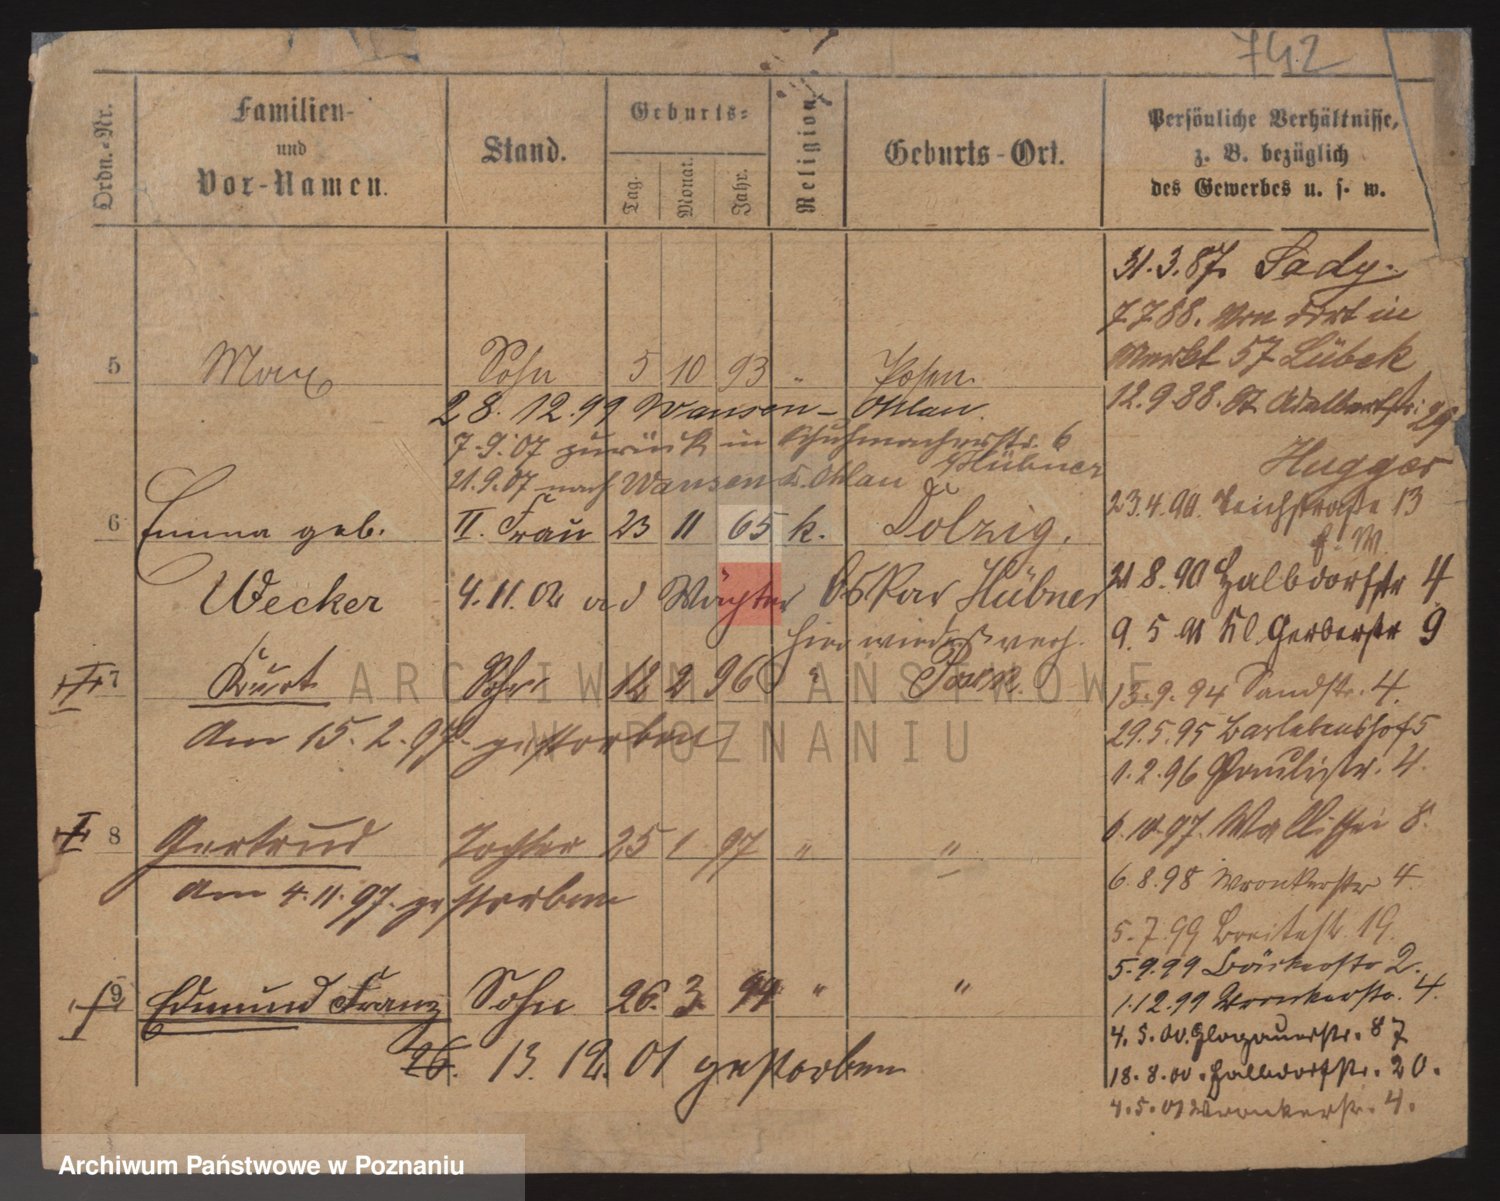 742
Ordn.-Nr.
Familien-
und
Vor-Namen.
Stand.
Geburts-
Tag.
Monat.
Jahr.
Religion
Geburts-Ort.
Persönliche Verhältnisse,
z. B. bezüglich
des Gewerbes u. s. w.
31.3.87. Sady.
7.7.88. Von dort in
Markt 57 Lübek
12.9.88. St Adalbertstr. 29
Hugger
23.4.90. Teichstraße 13
21.8.90 Halbdorfstr 4
9.5.91 Kl. Gerberstr 9
13.9.94 Sandstr. 4.
29.5.95 Barlebenshof 5
1.2.96 Paulistr. 4.
6.10.97. Wallischei 8.
6.8.98 Wronkerstr 4.
5.7.99 Breitestr. 19.
5.9.99 Bäckerstr 2.
1.12.99 Wronkerstr. 4.
4.5.00. Glogauerstr. 87
18.8.00. Halbdorfstr. 20.
4.5.01 Wronkerstr. 4.
5 Max Sohn 5 10 93 " Posen.
28.12.99 Wansen - Ohlau.
7.9.07 zurück in Schuhmacherstr. 6
Hübner
21.9.07 nach Wansen K. Ohlau
6 Emma geb. II. Frau 23 11 65 k. Dolzig.
Wecker 4.11.02 ad Wächter Oskar Hübner
hier wieder verh.
7 Kurt Sohn 12 2 96 " Posen
Am 15.2.97. gestorben
8 Gertrud Tochter 25 1 97 " "
Am 4.11.97. gestorben
9 Edmund Franz Sohn 26. 3 99 " "
26. 13.12.01 gestorben
ARCHIWUM PAŃSTWOWE
W POZNANIU
Archiwum Państwowe w Poznaniu